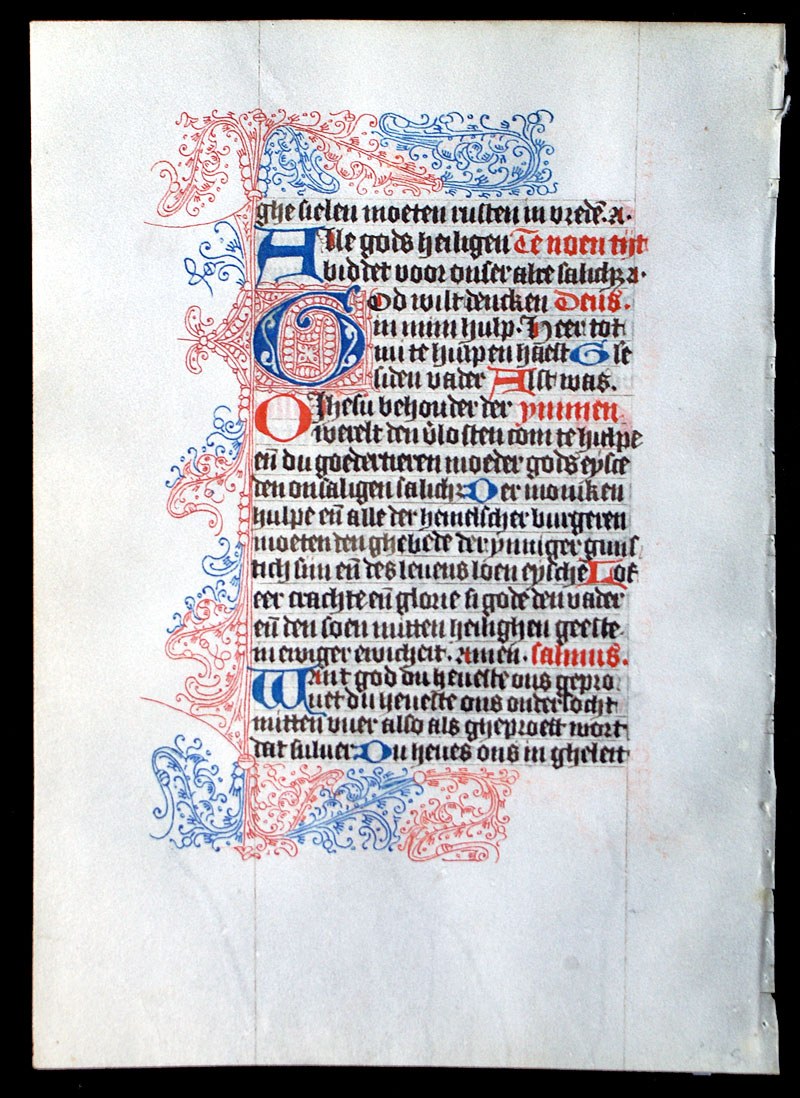 ghe sielen moeten rusten in vrede. a.
Alle gods heiligen Te noen tijt
biddet voor onser alre salich₃ a.
God wilt dencken Deus.
in mijn hulp. Heer tot
mi te hulpen haest G se
siden vader Alst was.
O Ihesu behouder der ymmen
werelt den v̄losten com te hulpe
en̄ du goedertieren moeder gods eysce
den onsaligen salich₃ Der moniken
hulpe en̄ alle der hemelscher burgeren
moeten den ghebede der ynniger guns
tich sijn en̄ des leuens loen eysche Lof
eer crachte en̄ glorie si gode den vader
en̄ den soen mitten heilighen geeste.
in ewiger ewicheit. amen. salmus.
Want god du heueste ons gepro
uet du heueste ons onderсocht
mitten vuer also als gheproeft wort
dat suluer Du heues ons in gheleit